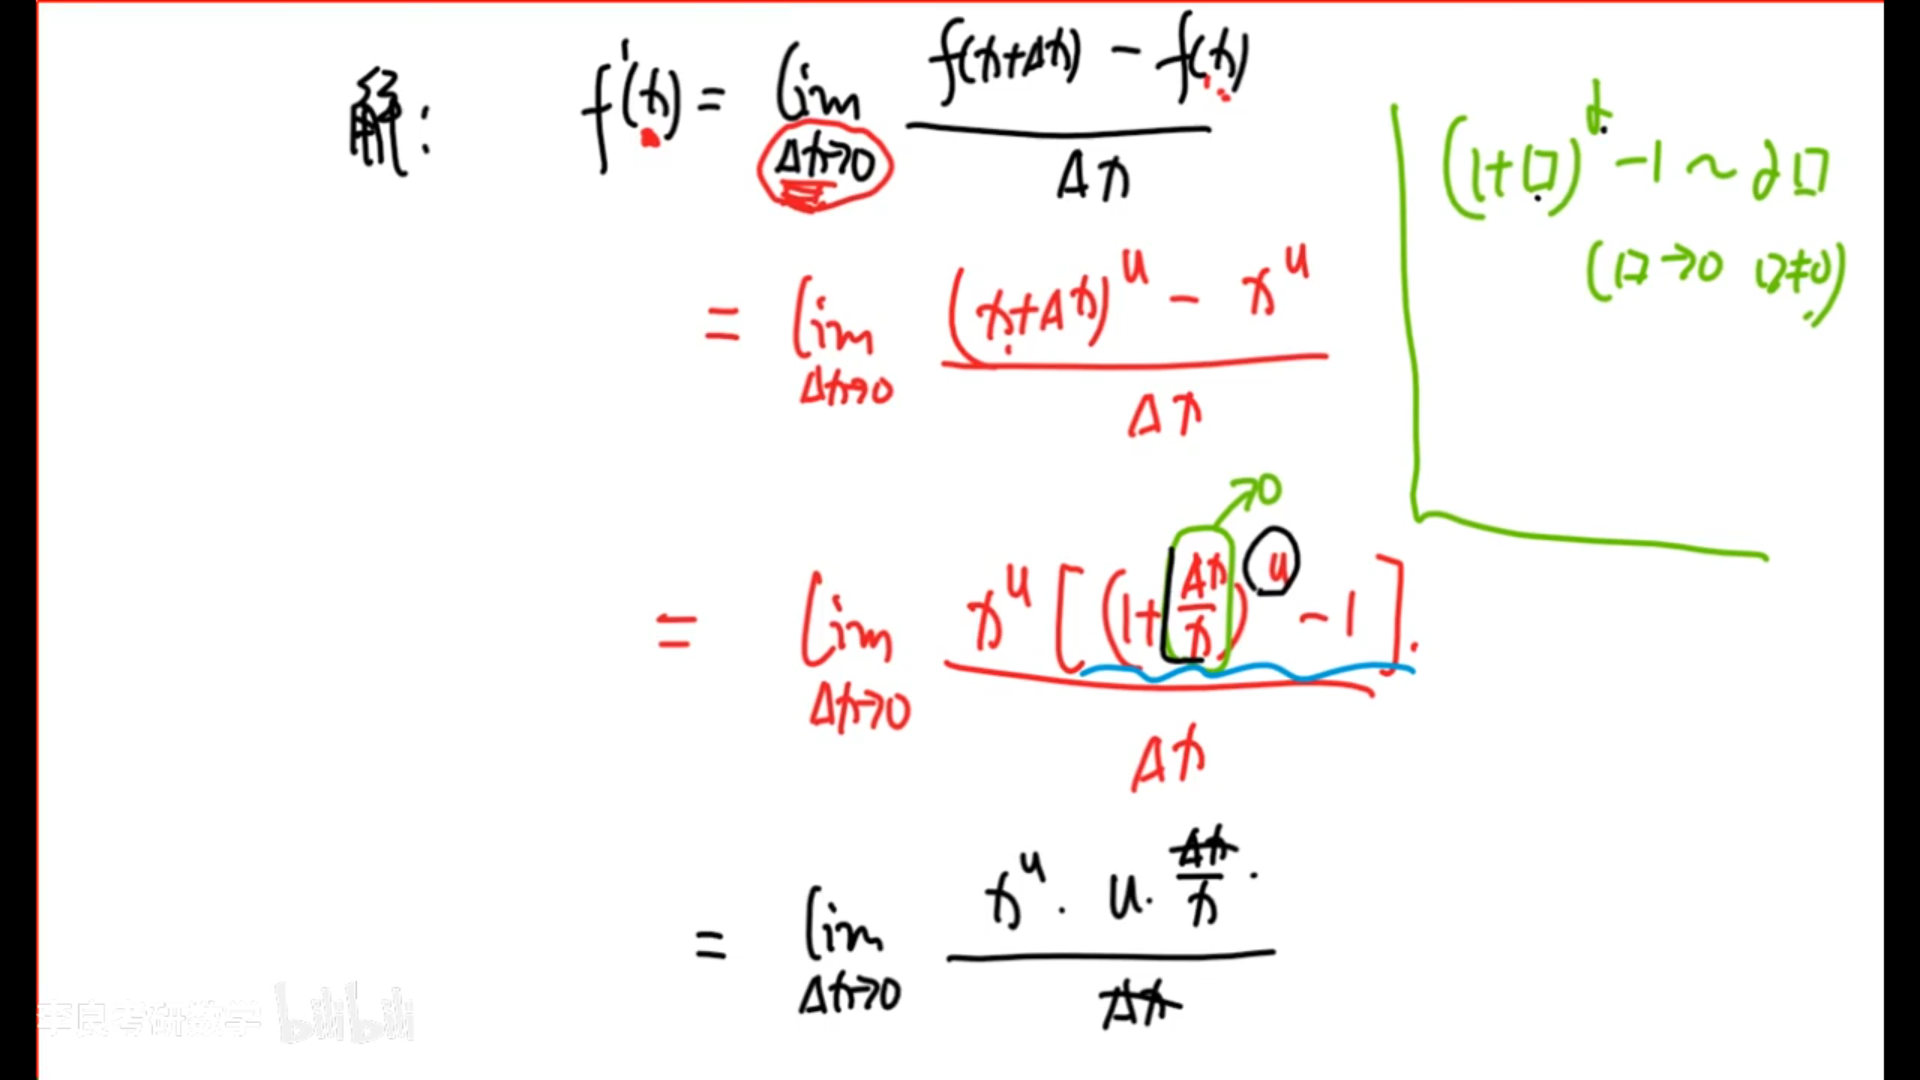 解: f'(x) = lim Δx→0 (f(x+Δx) - f(x)) / Δx
(1+□)^α - 1 ~ α□
(□→0 □≠0)
= lim Δx→0 ((x+Δx)^u - x^u) / Δx
→0
= lim Δx→0 x^u [(1+Δx/x)^u - 1] / Δx
= lim Δx→0 (x^u · u · Δx/x) / Δx
李良考研数学 bilibili